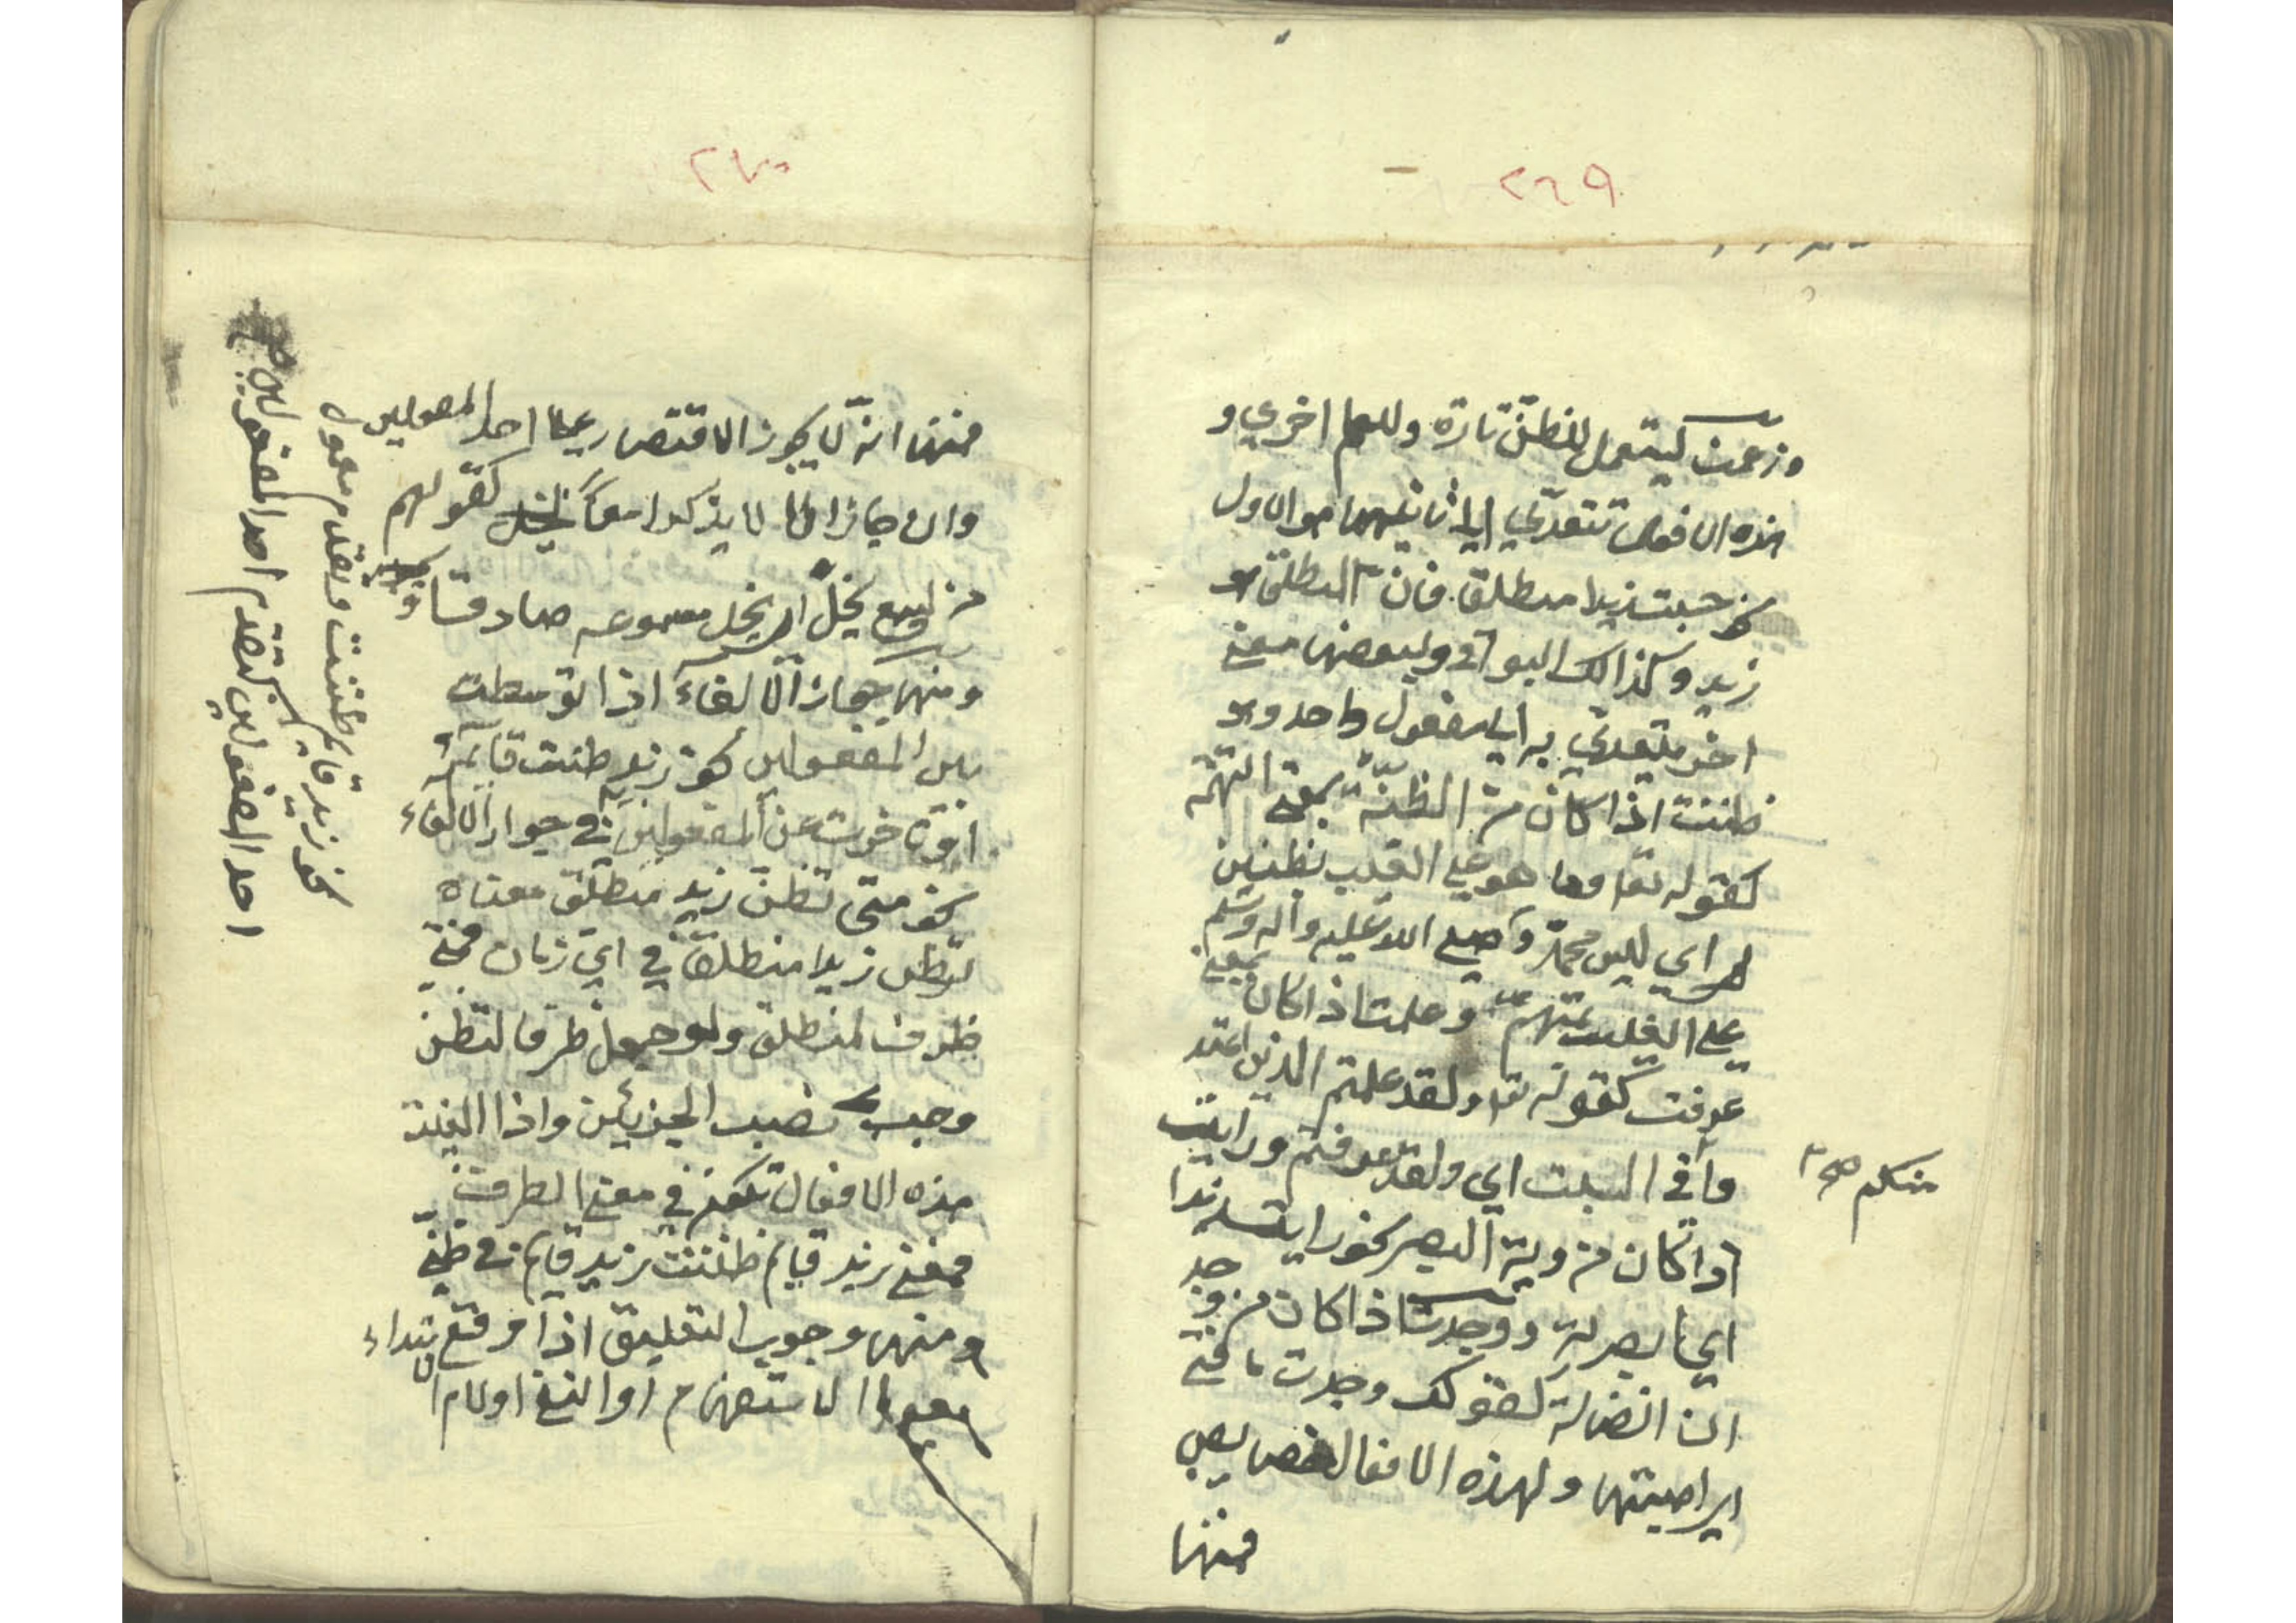 ٢٦٩
وزعمت يستعمل للظنّ تارة وللعلم اخري و
هذه الافعال تتعدّي الى ثانيهما هو الاول
نحو حسبت زيدا منطلقا فان المنطلق هو
زيد وكذالك البواقي ولبعضها معني
اخر يتعدّي به الى مفعول واحد وهو
ظننت اذا كان من الظنّة بمعني التهمة
كقوله تعا وما هو على الغيب بظنين
اي ليس محمّد صلى الله عليه وآله وسلم
على الغيب بمتهم وعلمت اذا كان بمعني
عرفت كقوله تعا ولقد علمتم الذين اعتدوا
منكم صح
في السبت اي ولقد عرفتم ورايت
اذا كان من روية البصر نحو رايت زيدا
اي ابصرته ووجدت اذا كان من وجد
ان الضالة كقولك وجدت ضالتي
اي اصبتها ولهذه الافعال خصايص
فمنها
٢٧٠
فمنها انّه لا يجوز الاقتصار على احد المفعولين
وان جاز ان لا يذكرا معاً كقولهم
من يسمع يخلّ اي يخل مسموعه صادقا
ومنها جواز الالغاء اذا توسطت
بين المفعولين نحو زيد ظننت قائم
او تاخرت عن المفعولين في جواز الالغاء
نحو متى تظن زيد منطلق معناه
تظن زيدا منطلقا في اي زمان فمتي
ظرف لمنطلق ولو جعل ظرفا لتظن
وجب نصب الجزئين واذا الغيت
هذه الافعال تكون في معني الظرف
فمعني زيد قايم ظننت زيد قايم في ظنّي
ومنها وجوب التعليق اذا وقع
بعدها الاستفهام او النفي او لام الابتداء
نحو زيد قايم ظننت وبتقدم معمول
احد المفعولين كتقدم احد المفعولين صح